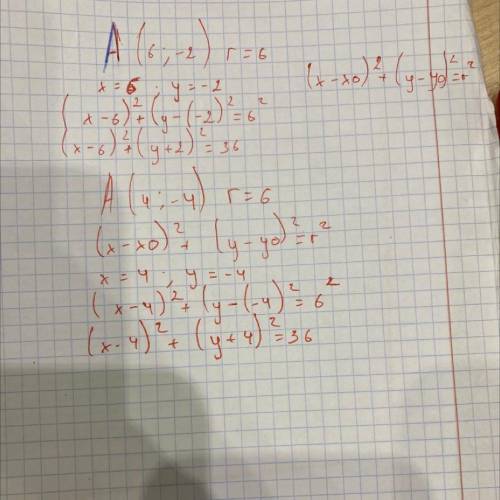 A (6; -2) r = 6
x = 6 ; y = -2
(x-x0)² + (y-y0)² = r²
(x-6)² + (y-(-2)² = 6²
(x-6)² + (y+2)² = 36
A (4; -4) r = 6
(x-x0)² + (y-y0)² = r²
x = 4 ; y = -4
(x-4)² + (y-(-4)² = 6²
(x-4)² + (y+4)² = 36